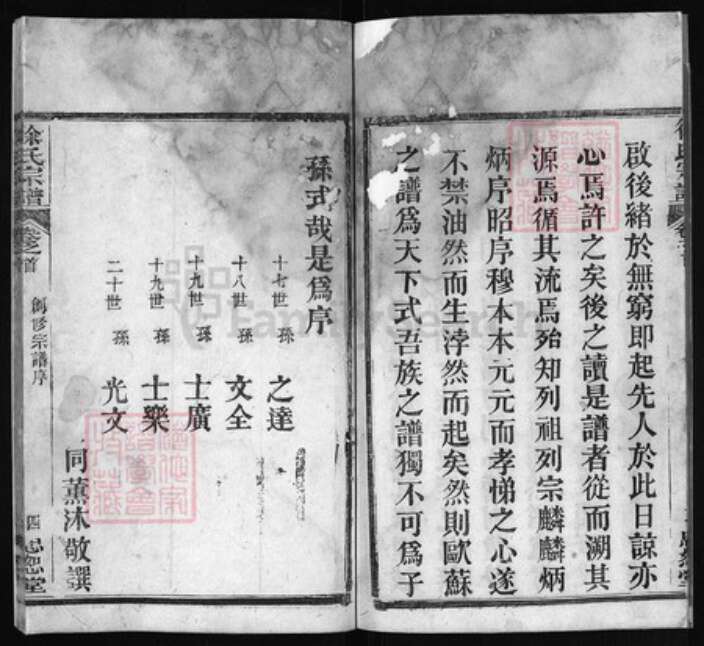 啟後緒於無窮即起先人於此日諒亦
心焉許之矣後之讀是譜者從而溯其
源焉循其流焉殆知列祖列宗麟麟炳
炳序昭序穆本本元元而孝悌之心遂
不禁油然而生浡然而起矣然則歐蘇
之譜為天下式吾族之譜獨不可為子
孫式哉是為序
十七世 孫 之達
十八世 孫 文全
十九世 孫 士廣
十九世 孫 士樂
二十世 孫 光文
同薰沐敬譔
徐氏宗譜 卷之首 創修宗譜序 四 忠恕堂
FamilySearch